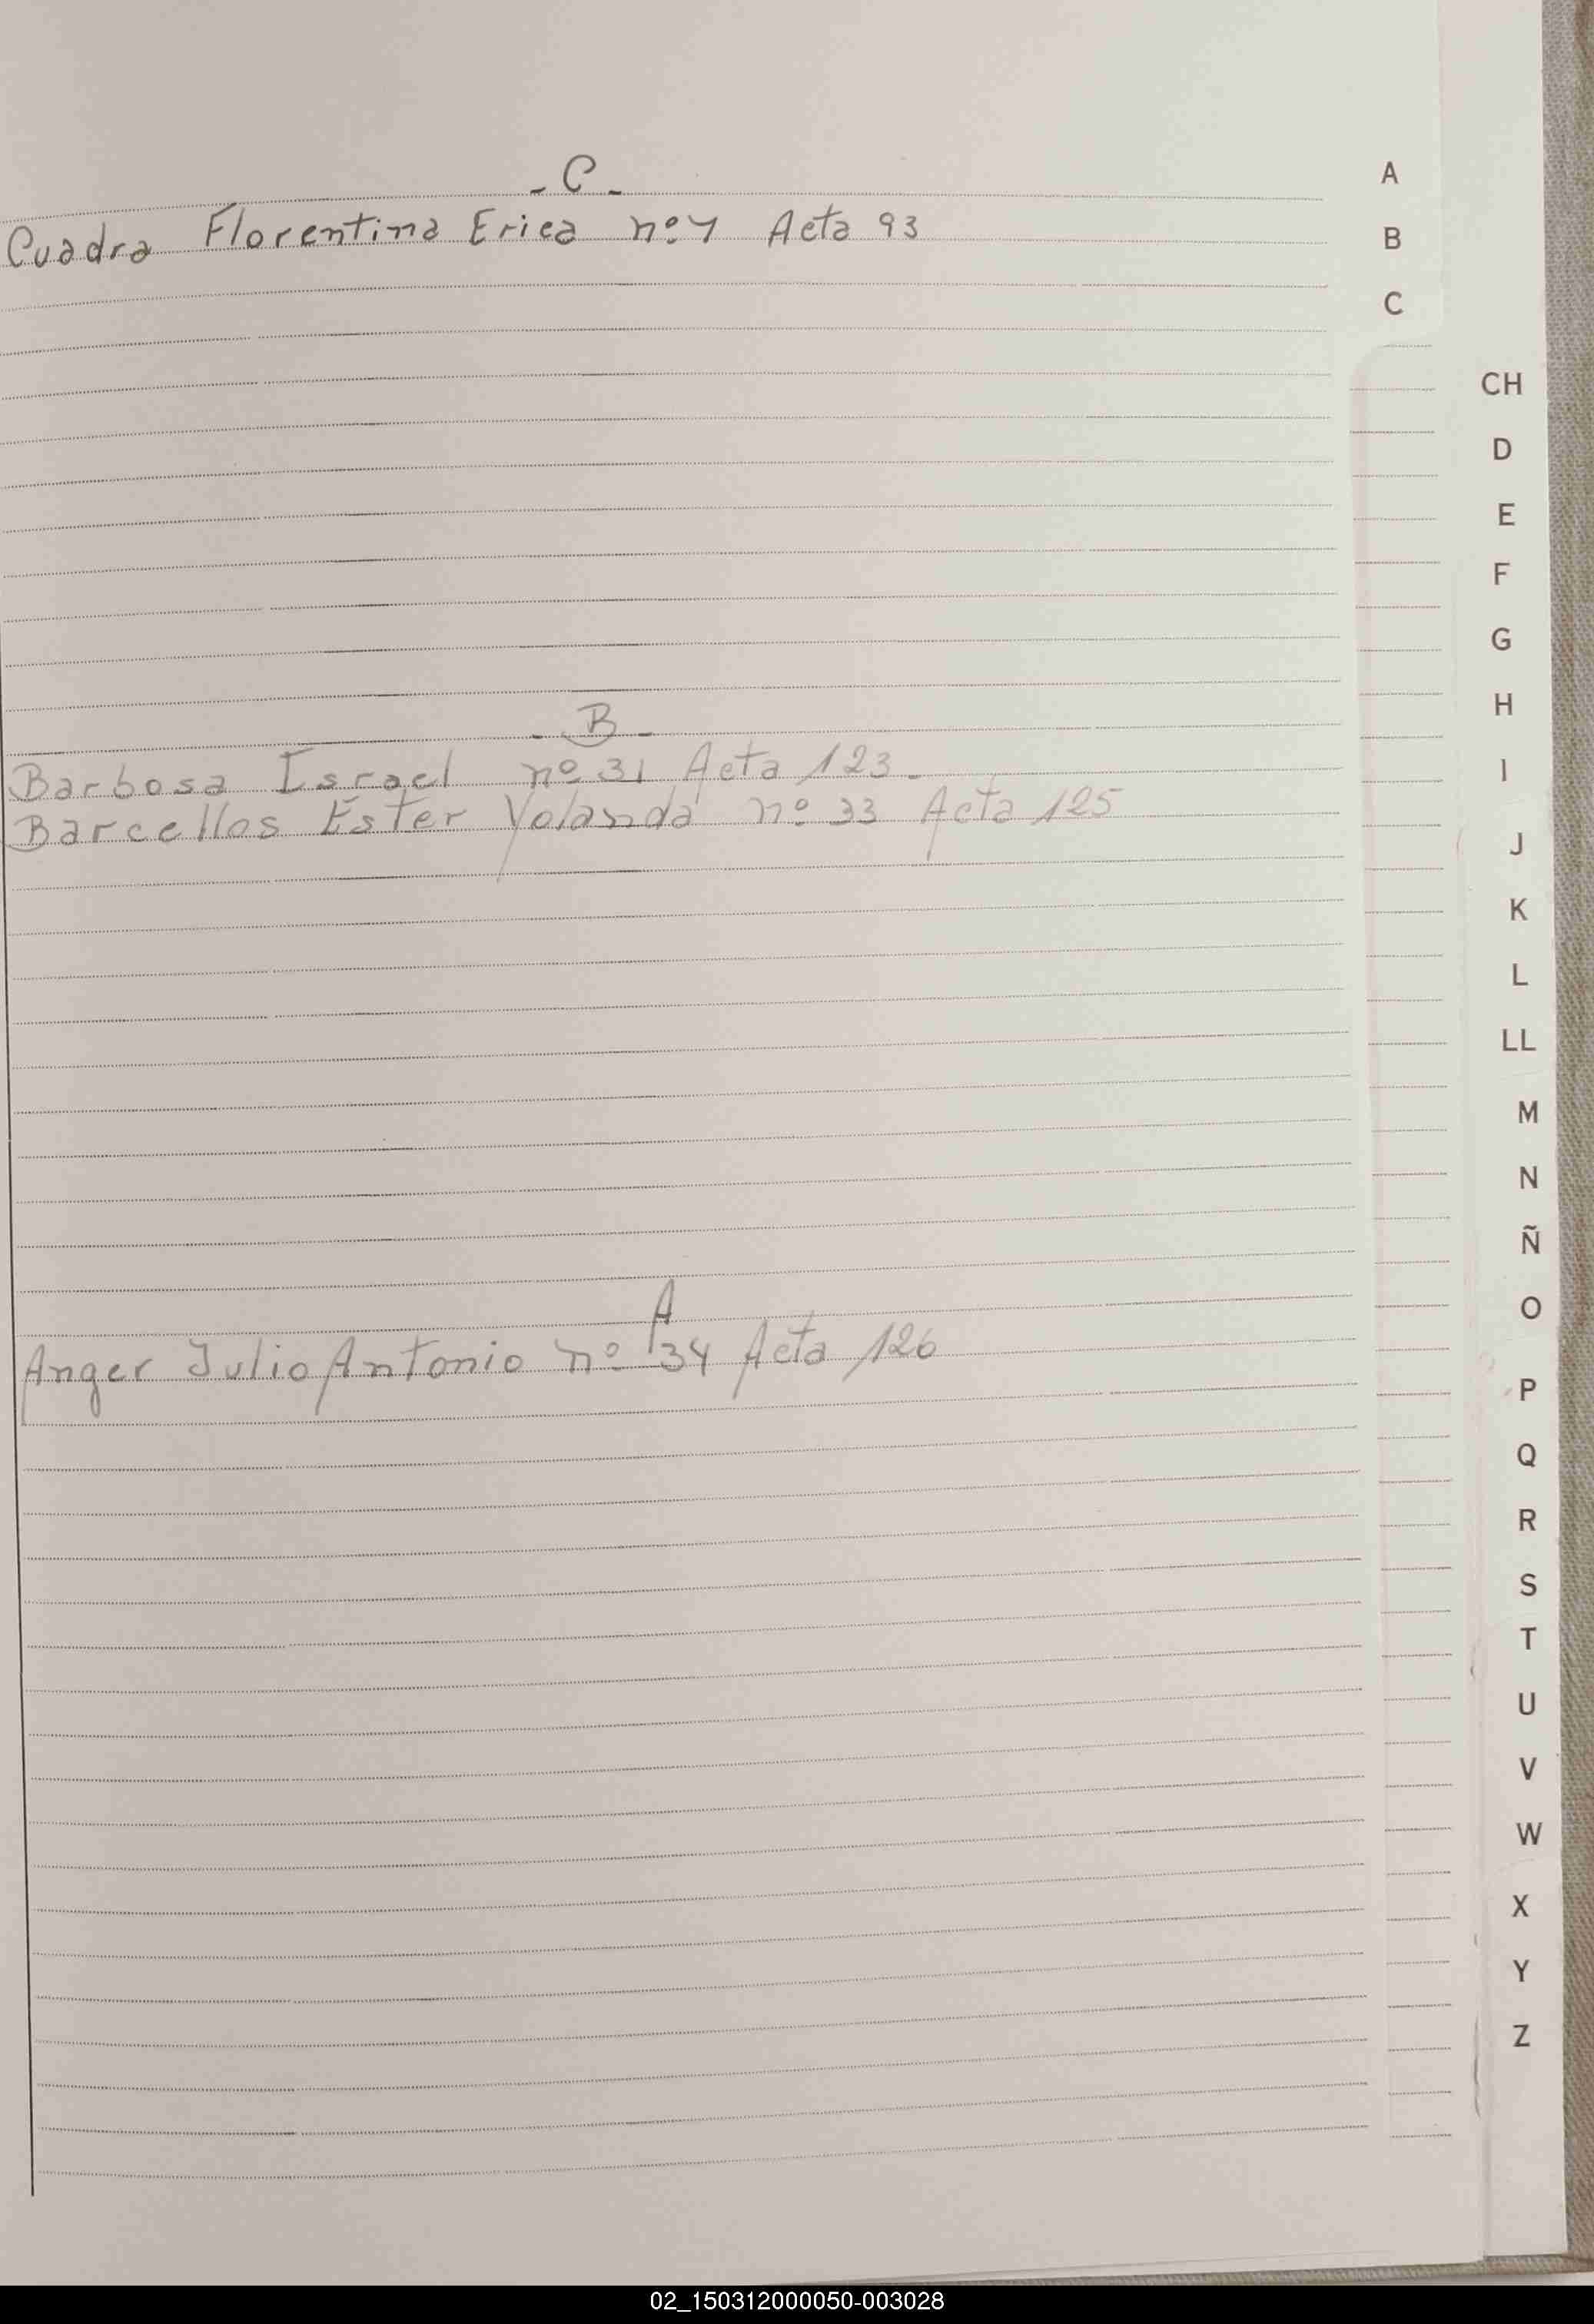 - C -
Cuadra Florentina Erica nº 1 Acta 93
- B -
Barbosa Israel nº 31 Acta 123.
Barcellos Ester Yolanda nº 33 Acta 125
A
Anger Julio Antonio nº 34 Acta 126
A
B
C
CH
D
E
F
G
H
I
J
K
L
LL
M
N
Ñ
O
P
Q
R
S
T
U
V
W
X
Y
Z
02_150312000050-003028